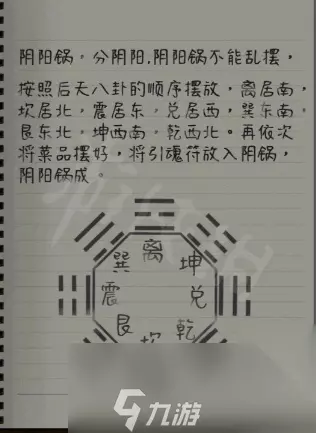 阴阳锅，分阴阳.阴阳锅不能乱摆，
按照后天八卦的顺序摆放，离居南，
坎居北，震居东，兑居西，巽东南，
艮东北，坤西南，乾西北。再依次
将菜品摆好，将引魂符放入阴锅，
阴阳锅成。
离
巽 坤
震 兑
艮 乾
坎
九游